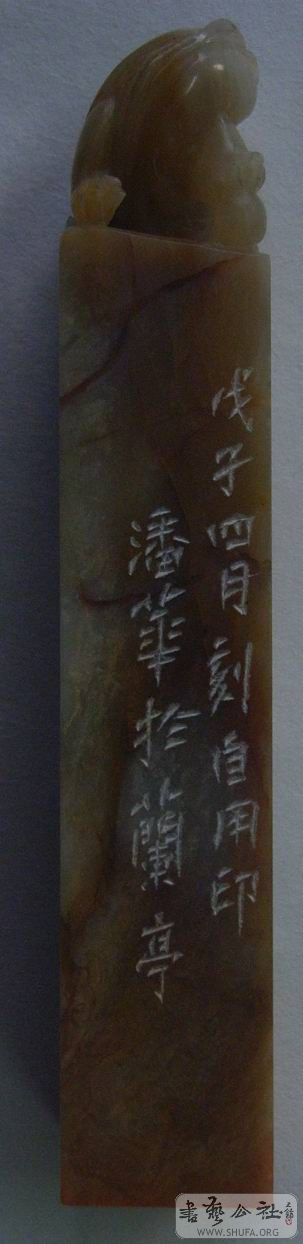 戊子四月刻自用印
潘華於蘭亭
書藝公社
WWW.SHUFA.ORG